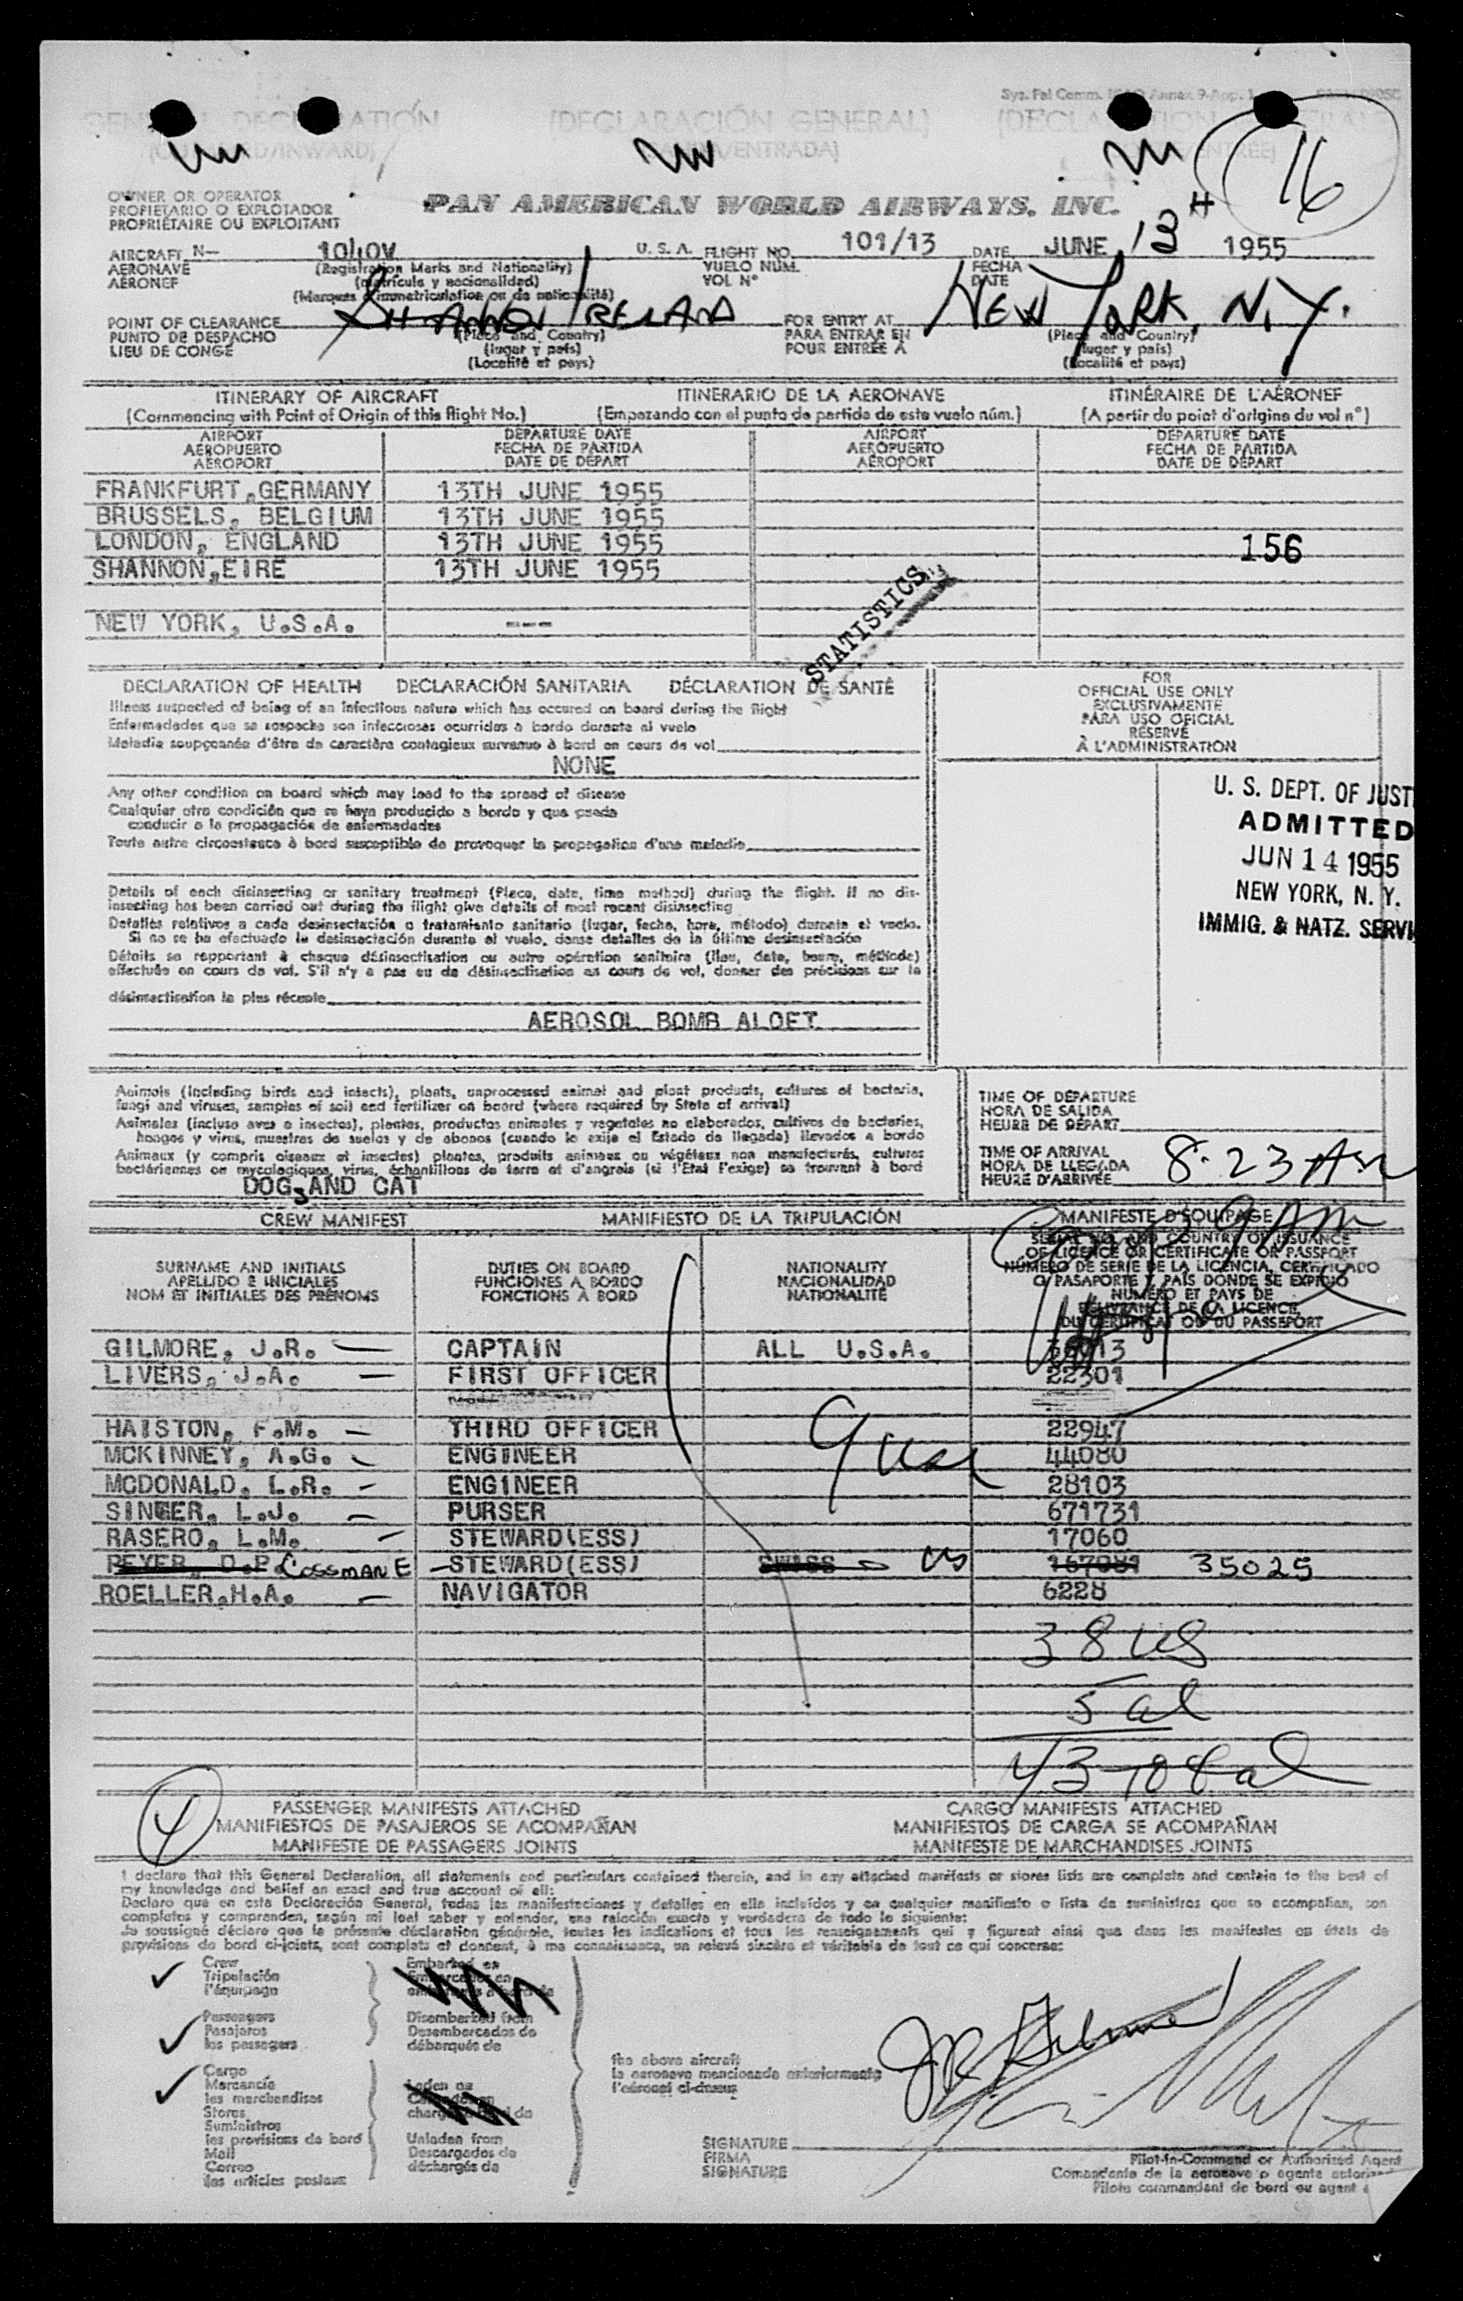 (DECLARACIÓN GENERAL)
16
OWNER OR OPERATOR
PROPIETARIO O EXPLOTADOR
PROPRIÉTAIRE OU EXPLOITANT
PAN AMERICAN WORLD AIRWAYS, INC.
AIRCRAFT N- 1040V U.S.A. FLIGHT NO. 101/13 DATE JUNE 13TH 1955
AERONAVE (Registration Marks and Nationality) VUELO NUM. FECHA
AÉRONEF (matrícula y nacionalidad) VOL N° DATE
(Marques d'immatriculation ou de nationalité)
POINT OF CLEARANCE SHANNON IRELAND FOR ENTRY AT NEW YORK, N.Y.
PUNTO DE DESPACHO (Place and Country) PARA ENTRAR EN (Place and Country)
LIEU DE CONGÉ (lugar y país) POUR ENTRÉE À (lugar y país)
(Localité et pays) (Localité et pays)
ITINERARY OF AIRCRAFT ITINERARIO DE LA AERONAVE ITINÉRAIRE DE L'AÉRONEF
(Commencing with Point of Origin of this flight No.) (Empezando con el punto de partida de este vuelo núm.) (A partir du point d'origine du vol n°)
AIRPORT DEPARTURE DATE AIRPORT DEPARTURE DATE
AEROPUERTO FECHA DE PARTIDA AEROPUERTO FECHA DE PARTIDA
AÉROPORT DATE DE DÉPART AÉROPORT DATE DE DÉPART
FRANKFURT,GERMANY 13TH JUNE 1955
BRUSSELS, BELGIUM 13TH JUNE 1955
LONDON, ENGLAND 13TH JUNE 1955 156
SHANNON,EIRE 13TH JUNE 1955
NEW YORK, U.S.A. ---
STATISTICS
DECLARATION OF HEALTH DECLARACIÓN SANITARIA DÉCLARATION DE SANTÉ
Illness suspected of being of an infectious nature which has occured on board during the flight
Enfermedades que se sospecha son infecciosas ocurridas a bordo durante el vuelo
Maladie soupçonnée d'être de caractère contagieux survenue à bord en cours de vol
NONE
Any other condition on board which may lead to the spread of disease
Cualquier otra condición que se haya producido a bordo y que pueda
conducir a la propagación de enfermedades
Toute autre circonstance à bord susceptible de provoquer la propagation d'une maladie
Details of each disinsecting or sanitary treatment (Place, date, time method) during the flight. If no dis-
insecting has been carried out during the flight give details of most recent disinsecting
Detalles relativos a cada desinsectación o tratamiento sanitario (lugar, fecha, hora, método) durante el vuelo.
Si no se ha efectuado la desinsectación durante el vuelo, dense detalles de la última desinsectación
Détails se rapportant à chaque désinsectisation ou autre opération sanitaire (lieu, date, heure, méthode)
effectuée en cours de vol. S'il n'y a pas eu de désinsectisation au cours de vol, donner des précisions sur la
désinsectisation la plus récente
AEROSOL BOMB ALOFT
FOR
OFFICIAL USE ONLY
EXCLUSIVAMENTE
PARA USO OFICIAL
RÉSERVÉ
À L'ADMINISTRATION
U. S. DEPT. OF JUST
ADMITTED
JUN 14 1955
NEW YORK, N. Y.
IMMIG. & NATZ. SERVI
Animals (including birds and insects), plants, unprocessed animal and plant products, cultures of bacteria,
fungi and viruses, samples of soil and fertilizer on board (where required by State of arrival)
Animales (incluso aves e insectos), plantas, productos animales y vegetales no elaborados, cultivos de bacterias,
hongos y virus, muestras de suelos y de abonos (cuando lo exija el Estado de llegada) llevados a bordo
Animaux (y compris oiseaux et insectes) plantes, produits animaux ou végétaux non manufacturés, cultures
bactériennes ou mycologiques, virus, échantillons de terre et d'engrais (si l'Etat l'exige) se trouvant à bord
DOGS AND CAT
TIME OF DEPARTURE
HORA DE SALIDA
HEURE DE DÉPART
TIME OF ARRIVAL
HORA DE LLEGADA
HEURE D'ARRIVÉE 8.23 AM
CREW MANIFEST MANIFIESTO DE LA TRIPULACIÓN MANIFESTE D'ÉQUIPAGE
SURNAME AND INITIALS DUTIES ON BOARD NATIONALITY
APELLIDO E INICIALES FUNCIONES A BORDO NACIONALIDAD
NOM ET INITIALES DES PRÉNOMS FONCTIONS À BORD NATIONALITÉ
SERIAL NO. AND COUNTRY OF ISSUANCE
OF LICENCE OR CERTIFICATE OR PASSPORT
NÚMERO DE SERIE DE LA LICENCIA, CERTIFICADO
O PASAPORTE Y PAÍS DONDE SE EXPIDIÓ
NUMÉRO ET PAYS DE
DÉLIVRANCE DE LA LICENCE,
DU CERTIFICAT OU DU PASSEPORT
GILMORE, J.R. CAPTAIN ALL U.S.A.
LIVERS, J.A. FIRST OFFICER 22301
HAISTON, F.M. THIRD OFFICER 22947
MCKINNEY, A.G. ENGINEER 44080
MCDONALD, L.R. ENGINEER 28103
SINGER, L.J. PURSER 671731
RASERO, L.M. STEWARD(ESS) 17060
PEYER, D.P COSSMAN E STEWARD(ESS) SWISS US 167081 35025
ROELLER,H.A. NAVIGATOR 6228
9 USA
38 US
5 al
43 total
4
PASSENGER MANIFESTS ATTACHED CARGO MANIFESTS ATTACHED
MANIFIESTOS DE PASAJEROS SE ACOMPAÑAN MANIFIESTOS DE CARGA SE ACOMPAÑAN
MANIFESTE DE PASSAGERS JOINTS MANIFESTE DE MARCHANDISES JOINTS
I declare that this General Declaration, all statements and particulars contained therein, and in any attached manifests or stores lists are complete and contain to the best of
my knowledge and belief an exact and true account of all:
Declaro que en esta Declaración General, todas las manifestaciones y detalles en ella incluídos y en cualquier manifiesto o lista de suministros que se acompañan, son
completos y comprenden, según mi leal saber y entender, una relación exacta y verdadera de todo lo siguiente:
Je soussigné déclare que la présente déclaration générale, toutes les indications et tous les renseignements qui y figurent ainsi que dans les manifestes ou états de
provisions de bord ci-joints, sont complets et donnent, à ma connaissance, un relevé sincère et véritable de tout ce qui concerne:
Crew Embarked on
Tripulación Embarcados en
l'équipage
Passengers Disembarked from
Pasajeros Desembarcados de
les passagers débarqués de
Cargo
Mercancía Laden on
les marchandises
Stores
Suministros
les provisions de bord Unladen from
Mail Descargados de
Correo déchargés de
les articles postaux
the above aircraft
la aeronave mencionada anteriormente
l'aéronef ci-dessus
JR Gilmore
SIGNATURE
FIRMA
SIGNATURE
Pilot-in-Command or Authorized Agent
Comandante de la aeronave o agente
Pilote commandant de bord ou agent